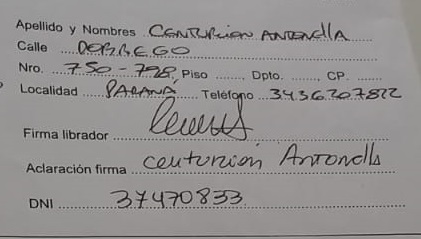 Apellido y Nombres CENTURION ANTONELLA
Calle DORREGO
Nro. 750-798, Piso ......, Dpto. ......, CP. ......
Localidad PARANA Teléfono 3436207822
Firma librador
Aclaración firma centurion Antonella
DNI 37470833